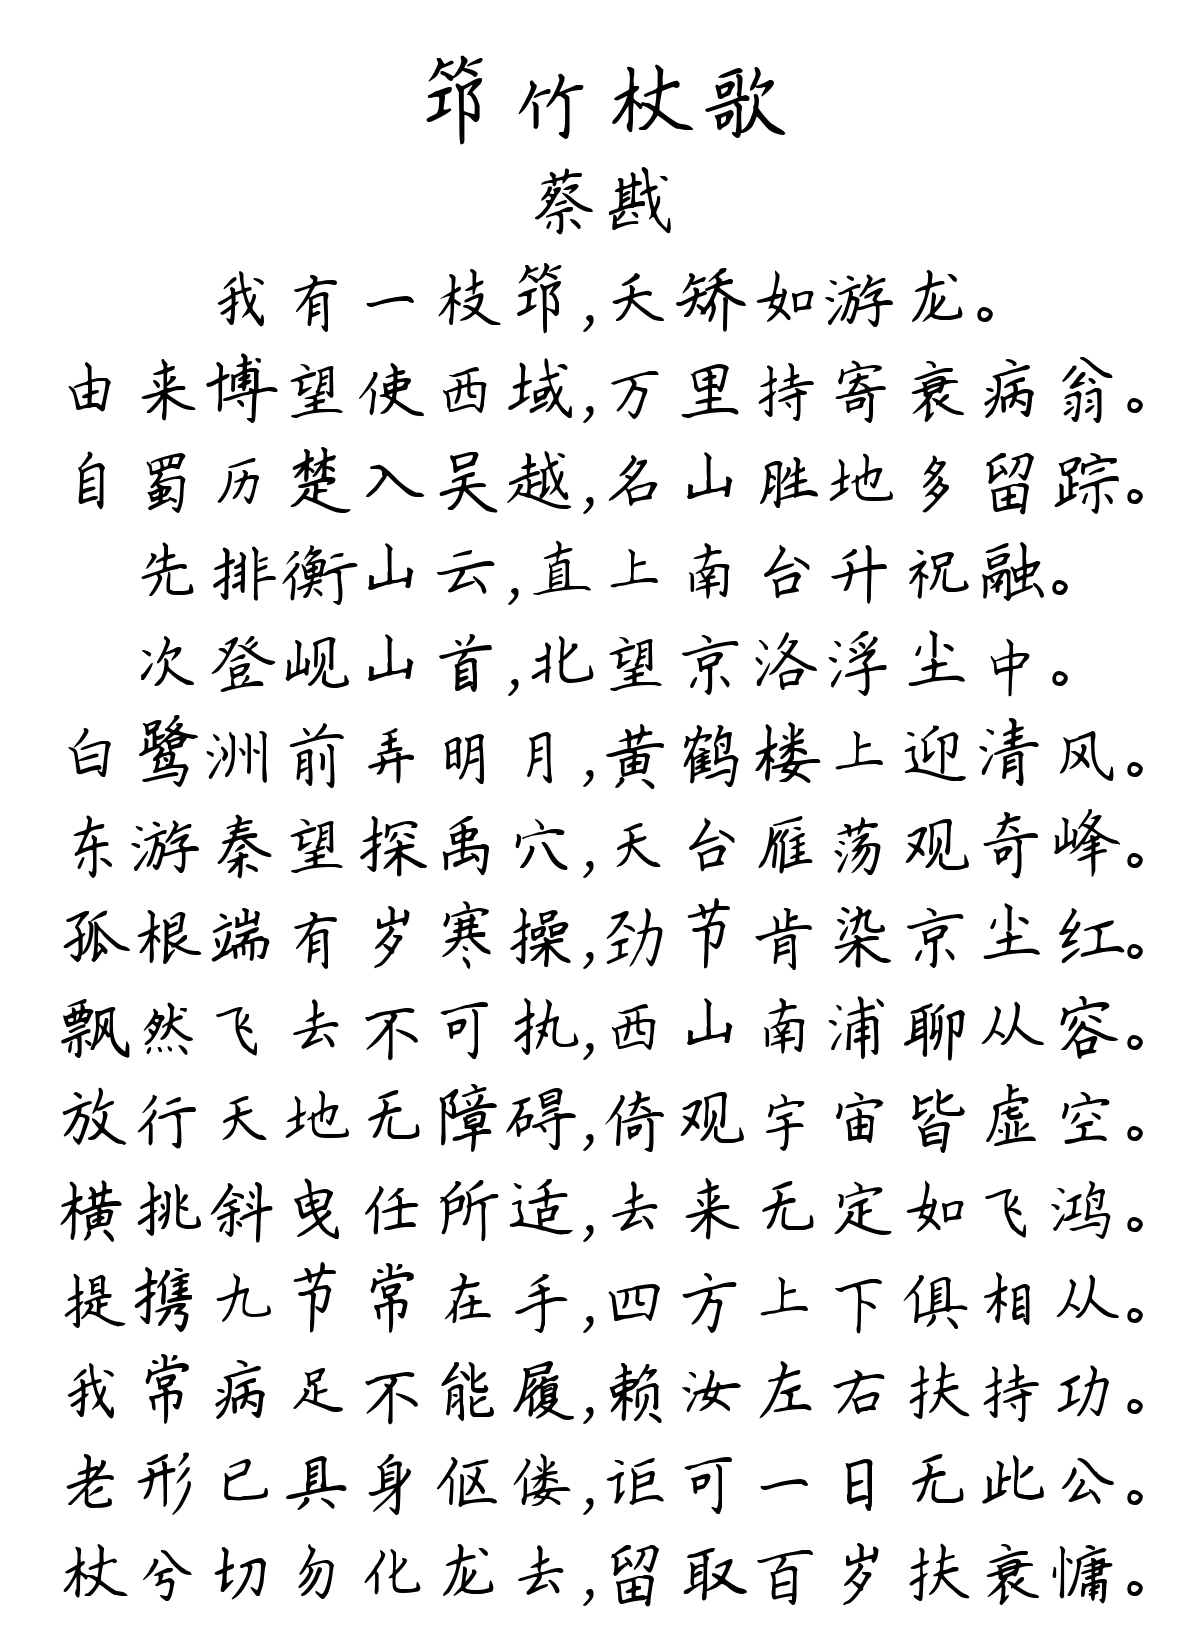 筇竹杖歌
蔡戡
我有一枝筇,夭矫如游龙。
由来博望使西域,万里持寄衰病翁。
自蜀历楚入吴越,名山胜地多留踪。
先排衡山云,直上南台升祝融。
次登岘山首,北望京洛浮尘中。
白鹭洲前弄明月,黄鹤楼上迎清风。
东游秦望探禹穴,天台雁荡观奇峰。
孤根端有岁寒操,劲节肯染京尘红。
飘然飞去不可执,西山南浦聊从容。
放行天地无障碍,倚观宇宙皆虚空。
横挑斜曳任所适,去来无定如飞鸿。
提携九节常在手,四方上下俱相从。
我常病足不能履,赖汝左右扶持功。
老形已具身伛偻,讵可一日无此公。
杖兮切勿化龙去,留取百岁扶衰慵。